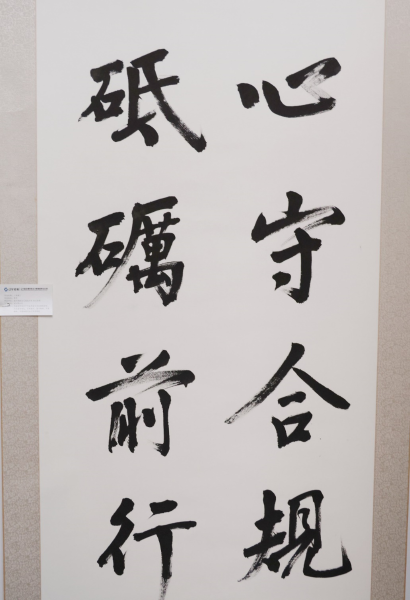 心守合规
砥礪前行